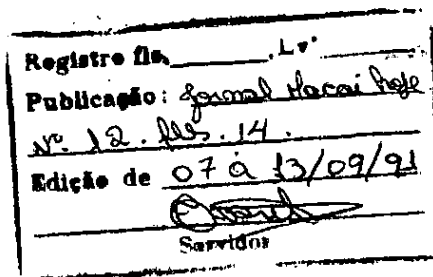 Registro fls. ______, Lvº ______
Publicação: Jornal Macaé Hoje
Nº 12. fls. 14.
Edição de 07 à 13/09/91
Servidor